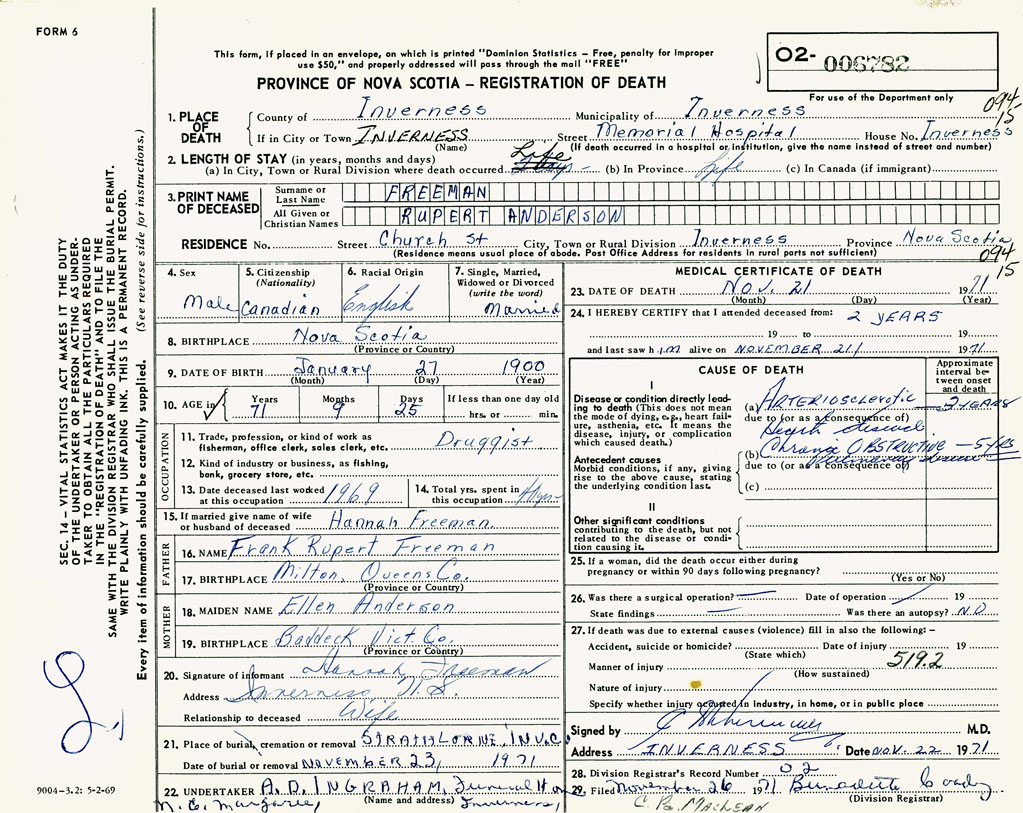 FORM 6
This form, if placed in an envelope, on which is printed "Dominion Statistics – Free, penalty for improper
use $50," and properly addressed will pass through the mail "FREE"
PROVINCE OF NOVA SCOTIA – REGISTRATION OF DEATH
02- 006782
For use of the Department only
094
15
SEC. 14 – VITAL STATISTICS ACT MAKES IT THE DUTY
OF THE UNDERTAKER OR PERSON ACTING AS UNDER-
TAKER TO OBTAIN ALL THE PARTICULARS REQUIRED
IN THE "REGISTRATION OF DEATH" AND TO FILE THE
SAME WITH THE DIVISION REGISTRAR WHO SHALL ISSUE THE BURIAL PERMIT.
WRITE PLAINLY WITH UNFADING INK. THIS IS A PERMANENT RECORD.
Every item of information should be carefully supplied. (See reverse side for instructions.)
9004-3.2: 5-2-69
1. PLACE OF DEATH
County of Inverness Municipality of Inverness
If in City or Town INVERNESS Street Memorial Hospital House No. Inverness
(Name) (If death occurred in a hospital or institution, give the name instead of street and number)
2. LENGTH OF STAY (in years, months and days)
(a) In City, Town or Rural Division where death occurred Life (b) In Province Life (c) In Canada (if immigrant)
3. PRINT NAME OF DECEASED
Surname or Last Name FREEMAN
All Given or Christian Names RUPERT ANDERSON
RESIDENCE No. Street Church St City, Town or Rural Division Inverness Province Nova Scotia
(Residence means usual place of abode. Post Office Address for residents in rural parts not sufficient)
094
15
4. Sex Male
5. Citizenship (Nationality) Canadian
6. Racial Origin English
7. Single, Married, Widowed or Divorced (write the word) Married
8. BIRTHPLACE Nova Scotia
(Province or Country)
9. DATE OF BIRTH January 27 1900
(Month) (Day) (Year)
10. AGE in Years 71 Months 9 Days 25 If less than one day old hrs. or min.
OCCUPATION
11. Trade, profession, or kind of work as fisherman, office clerk, sales clerk, etc. Druggist
12. Kind of industry or business, as fishing, bank, grocery store, etc.
13. Date deceased last worked at this occupation 1969
14. Total yrs. spent in this occupation
15. If married give name of wife or husband of deceased Hannah Freeman
FATHER
16. NAME Frank Rupert Freeman
17. BIRTHPLACE Milton, Queens Co.
(Province or Country)
MOTHER
18. MAIDEN NAME Ellen Anderson
19. BIRTHPLACE Baddeck Vict. Co.
(Province or Country)
20. Signature of informant Hannah Freeman
Address Inverness, N.S.
Relationship to deceased Wife
21. Place of burial, cremation or removal STRATHLORNE, INV. C.
Date of burial or removal NOVEMBER 23, 1971
22. UNDERTAKER A. D. INGRAHAM, Funeral Home
(Name and address) Inverness,
MEDICAL CERTIFICATE OF DEATH
23. DATE OF DEATH NOV. 21 1971
(Month) (Day) (Year)
24. I HEREBY CERTIFY that I attended deceased from: 2 YEARS
19 to 19
and last saw him alive on NOVEMBER 21/ 1971
CAUSE OF DEATH
Approximate interval between onset and death
I
Disease or condition directly leading to death (This does not mean the mode of dying, e.g., heart failure, asthenia, etc. It means the disease, injury, or complication which caused death.)
(a) ARTERIOSCLEROTIC 2 YEARS
due to (or as a consequence of)
Heart disease
Antecedent causes
Morbid conditions, if any, giving rise to the above cause, stating the underlying condition last.
(b) Chronic OBSTRUCTIVE – 5 YRS
due to (or as a consequence of)
(c)
II
Other significant conditions
contributing to the death, but not related to the disease or condition causing it.
25. If a woman, did the death occur either during pregnancy or within 90 days following pregnancy?
(Yes or No)
26. Was there a surgical operation? Date of operation 19
State findings Was there an autopsy? NO
27. If death was due to external causes (violence) fill in also the following: –
Accident, suicide or homicide? Date of injury 19
(State which)
519.2
Manner of injury
(How sustained)
Nature of injury
Specify whether injury occurred in industry, in home, or in public place
Signed by M.D.
Address INVERNESS Date NOV. 22 1971
28. Division Registrar's Record Number 02
29. Filed November 26 1971 Bernadette Coady
(Division Registrar)